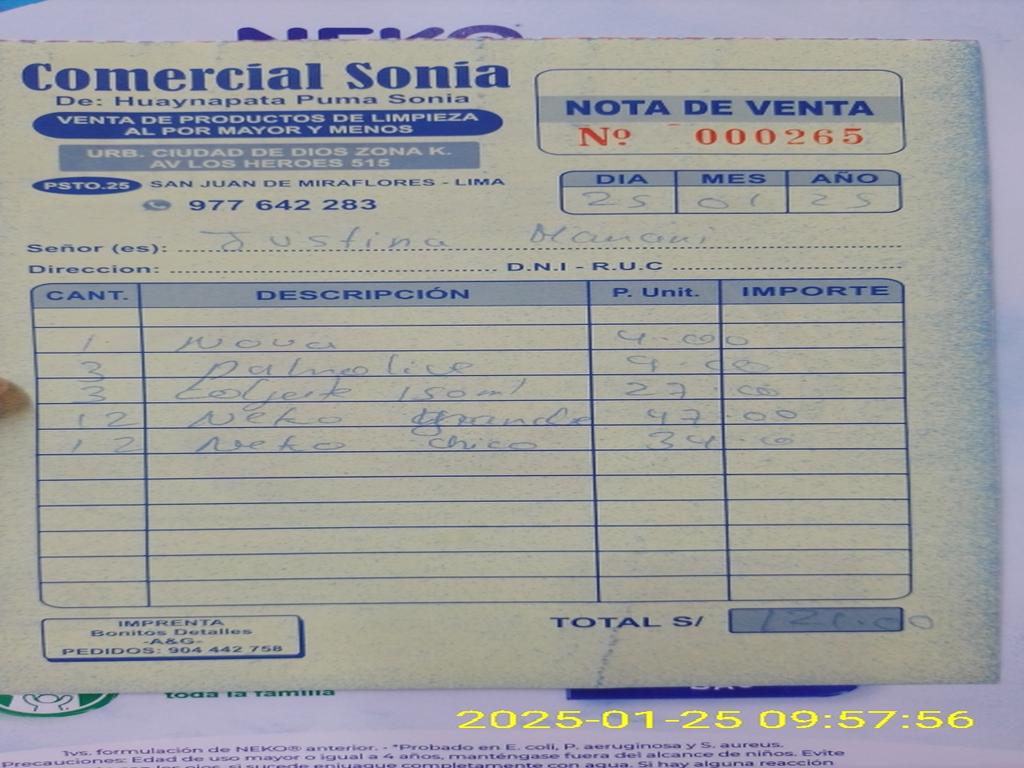 NEKO
Comercial Sonia
De: Huaynapata Puma Sonia
VENTA DE PRODUCTOS DE LIMPIEZA
AL POR MAYOR Y MENOS
URB. CIUDAD DE DIOS ZONA K.
AV LOS HEROES 515
PSTO.25 SAN JUAN DE MIRAFLORES - LIMA
977 642 283
NOTA DE VENTA
Nº 000265
DIA MES AÑO
25 01 25
Señor (es): Justina Mamani
Direccion: D.N.I - R.U.C
CANT. DESCRIPCIÓN P. Unit. IMPORTE
1 Nova 4.00
3 palmolive 9.00
3 Colgate 150ml 27.00
12 Neko grande 47.00
12 Neko chico 34.00
TOTAL S/ 121.00
IMPRENTA
Bonitos Detalles
-A&G-
PEDIDOS: 904 442 758
toda la familia
2025-01-25 09:57:56
1vs. formulación de NEKO® anterior. - *Probado en E. coli, P. aeruginosa y S. aureus.
Precauciones: Edad de uso mayor o igual a 4 años, manténgase fuera del alcance de niños. Evite
los ojos, si sucede enjuague completamente con agua. Si hay alguna reacción